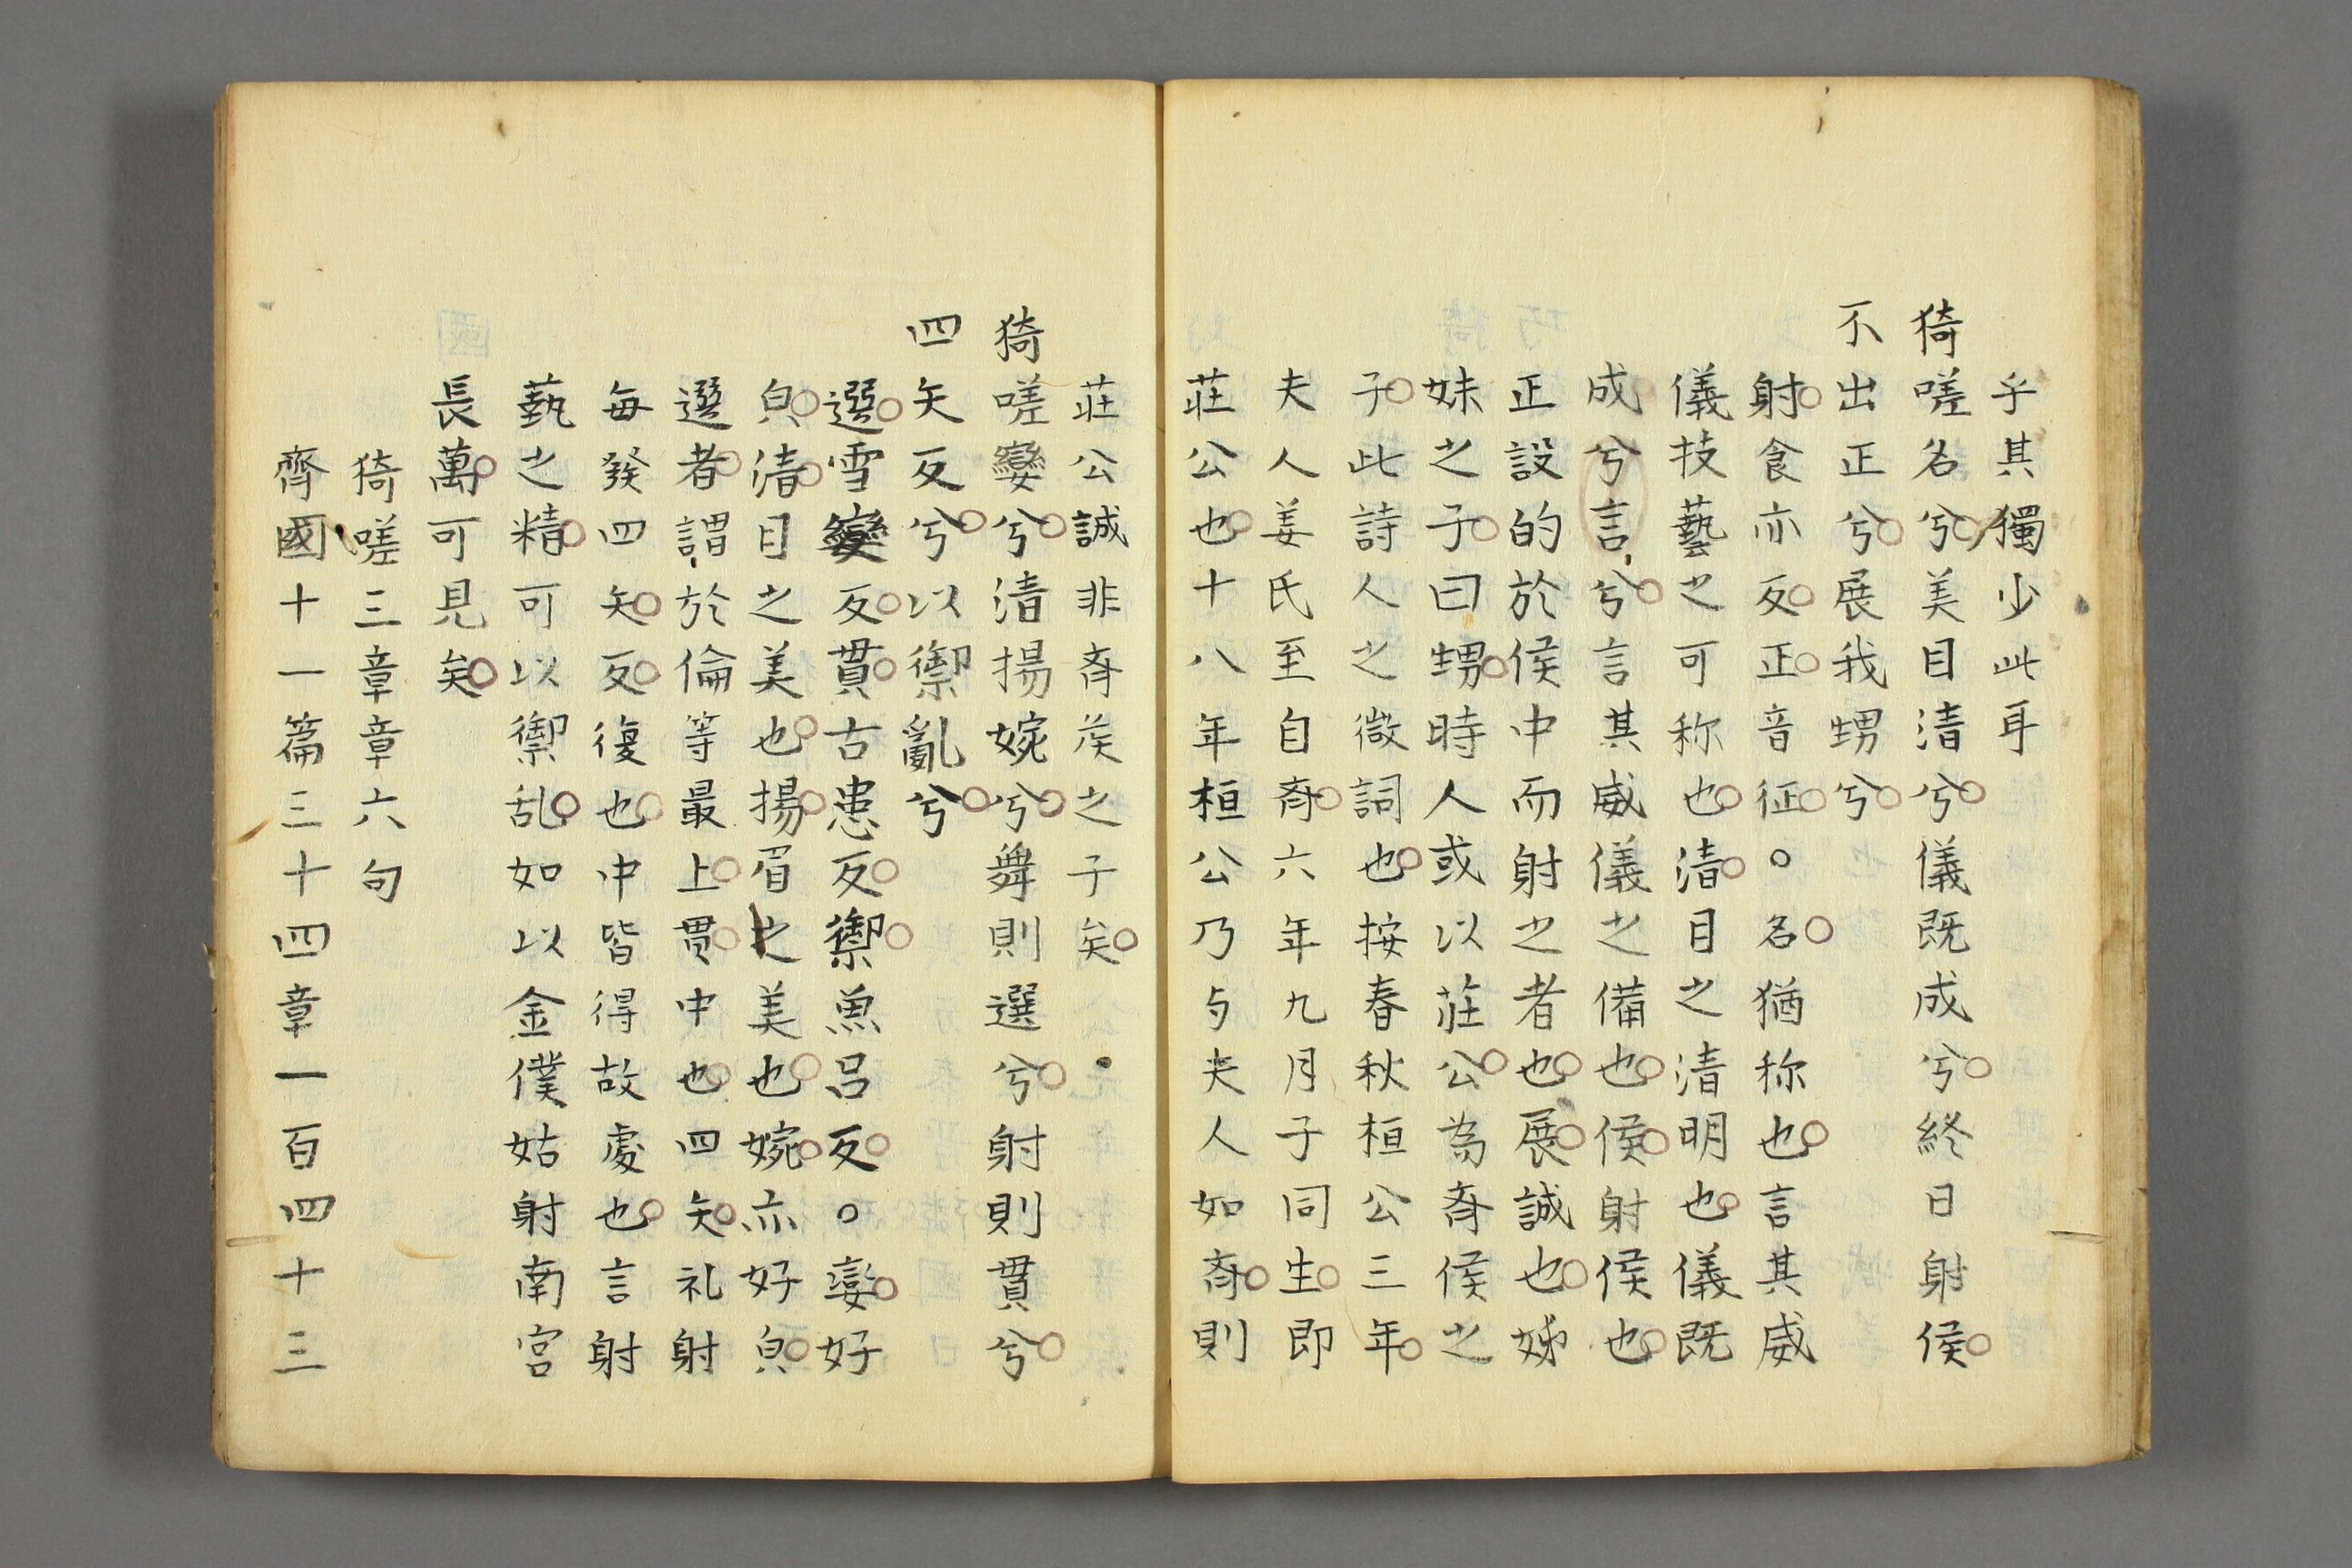 乎其獨少此耳
猗嗟名兮美目清兮儀既成兮終日射侯
不出正兮展我甥兮
射食亦反正音征○名猶称也言其威
儀技藝之可称也清目之清明也儀既
成兮言兮言其威儀之備也侯射侯也
正設的於侯中而射之者也展誠也姊
妹之子曰甥時人或以莊公為斉侯之
子此詩人之微詞也按春秋桓公三年
夫人姜氏至自斉六年九月子同生即
莊公也十八年桓公乃与夫人如斉則
莊公誠非斉侯之子矣
猗嗟孌兮清揚婉兮舞則選兮射則貫兮
四矢反兮以禦亂兮
選雪孌反貫古患反禦魚呂反○孌好
皃清目之美也揚眉之美也婉亦好皃
選者謂於倫等最上貫中也四矢礼射
每發四矢反復也中皆得故處也言射
藝之精可以禦乱如以金僕姑射南宮
長萬可見矣
猗嗟三章章六句
齊國十一篇三十四章一百四十三